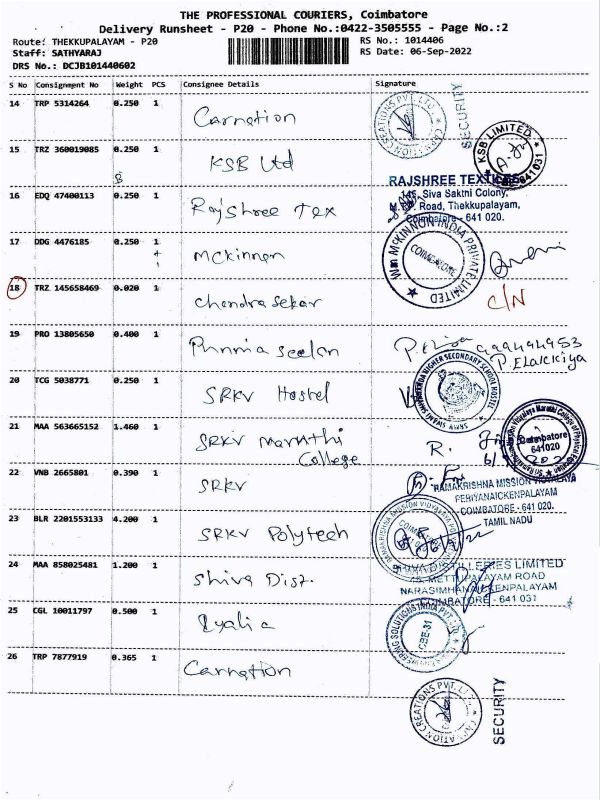 THE PROFESSIONAL COURIERS, Coimbatore
Delivery Runsheet - P20 - Phone No.:0422-3505555 - Page No.:2
Route: THEKKUPALAYAM - P20
RS No.: 1014406
Staff: SATHYARAJ
RS Date: 06-Sep-2022
DRS No.: DCJB101440602
S No Consignment No Weight PCS Consignee Details Signature
14 TRP 5314264 0.250 1 Carnation
SECURITY
15 TRZ 360019085 0.250 1 KSB Ltd
KSB LIMITED
641031
16 EDQ 47400113 0.250 1 Rajshree Tex
RAJSHREE TEXTILES
Siva Sakthi Colony,
Road, Thekkupalayam,
Coimbatore - 641 020.
17 DDG 4476185 0.250 1 Mckinnon
MCKINNON INDIA PRIVATE LIMITED
COIMBATORE
18 TRZ 145658469 0.020 1 Chandra Sekar
C/N
19 PRO 13805650 0.400 1
P. ELAKKIYA
20 TCG 5038771 0.250 1 SRKV Hostel
21 MAA 563665152 1.460 1 SRKV Maruthi
College
Coimbatore
641020
22 VNB 2665801 0.390 1 SRKV
RAMAKRISHNA MISSION VIDYALAYA
PERIYANAICKENPALAYAM
COIMBATORE - 641 020.
TAMIL NADU
23 BLR 2201553133 4.200 1 SRKV Polytech
24 MAA 858025481 1.200 1 Shiva Dist.
SHIVA DISTILLERIES LIMITED
METTUPALAYAM ROAD
NARASIMHANAICKENPALAYAM
COIMBATORE - 641 031
25 CGL 10011797 0.500 1
CBE-31
26 TRP 7877919 0.365 1 Carnation
CARNATION CREATIONS PVT. LTD.
SECURITY